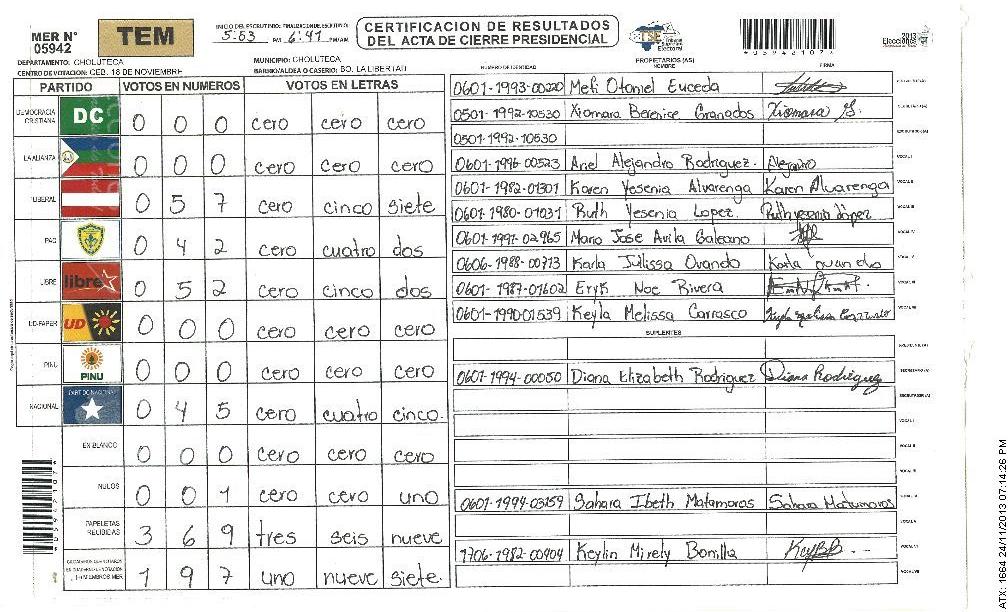 MER N° 05942
TEM
INICIO DEL ESCRUTINIO: FINALIZACION DE ESCRUTINIO:
5:53 PM 6:47 PM/AM
CERTIFICACION DE RESULTADOS
DEL ACTA DE CIERRE PRESIDENCIAL
TSE Tribunal Supremo Electoral
Elecciones 2013
DEPARTAMENTO: CHOLUTECA
MUNICIPIO: CHOLUTECA
CENTRO DE VOTACION: CEB. 18 DE NOVIEMBRE
BARRIO/ALDEA O CASERIO: BO. LA LIBERTAD
PARTIDO VOTOS EN NUMEROS VOTOS EN LETRAS
DEMOCRACIA CRISTIANA DC 0 0 0 cero cero cero
LA ALIANZA 0 0 0 cero cero cero
LIBERAL 0 5 7 cero cinco siete
PAC 0 4 2 cero cuatro dos
LIBRE libre 0 5 2 cero cinco dos
UD-FAPER UD 0 0 0 cero cero cero
PINU PINU 0 0 0 cero cero cero
NACIONAL PARTIDO NACIONAL 0 4 5 cero cuatro cinco.
EN BLANCO 0 0 0 cero cero cero
NULOS 0 0 1 cero cero uno
PAPELETAS RECIBIDAS 3 6 9 tres seis nueve
(+) MIEMBROS MER 1 9 7 uno nueve siete.
NUMERO DE IDENTIDAD PROPIETARIOS (AS) NOMBRE FIRMA
0601-1993-00220 Meli Otoniel Euceda
0501-1992-10530 Xiomara Berenice Granados Xiomara G. SECRETARIO(A)
0501-1992-10530 ESCRUTADOR(A)
0601-1996-00523 Ariel Alejandro Rodriguez. Alejandro VOCAL I
0601-1982-01301 Karen Yesenia Alvarenga Karen Alvarenga VOCAL II
0601-1980-01031 Ruth Yesenia Lopez. Ruth yesenia lópez VOCAL III
0601-1997-02965 Mario Jose Avila Galeano VOCAL IV
0606-1988-00713 Karla Julissa Ovando Karla ovando VOCAL V
0601-1987-01602 Eryk Noe Rivera VOCAL VI
0601-1990-01539 Keyla Melissa Carrasco VOCAL VII
SUPLENTES
PRESIDENTE(A)
0601-1994-00050 Diana Elizabeth Rodriguez Diana Rodriguez SECRETARIO(A)
ESCRUTADOR(A)
VOCAL I
VOCAL II
VOCAL III
0601-1994-03159 Sahara Ibeth Matamoros Sahara Matamoros VOCAL IV
VOCAL V
1706-1982-00904 Keylin Mirely Bonilla VOCAL VI
VOCAL VII
ATX: 1664 24/11/2013 07:14:26 PM